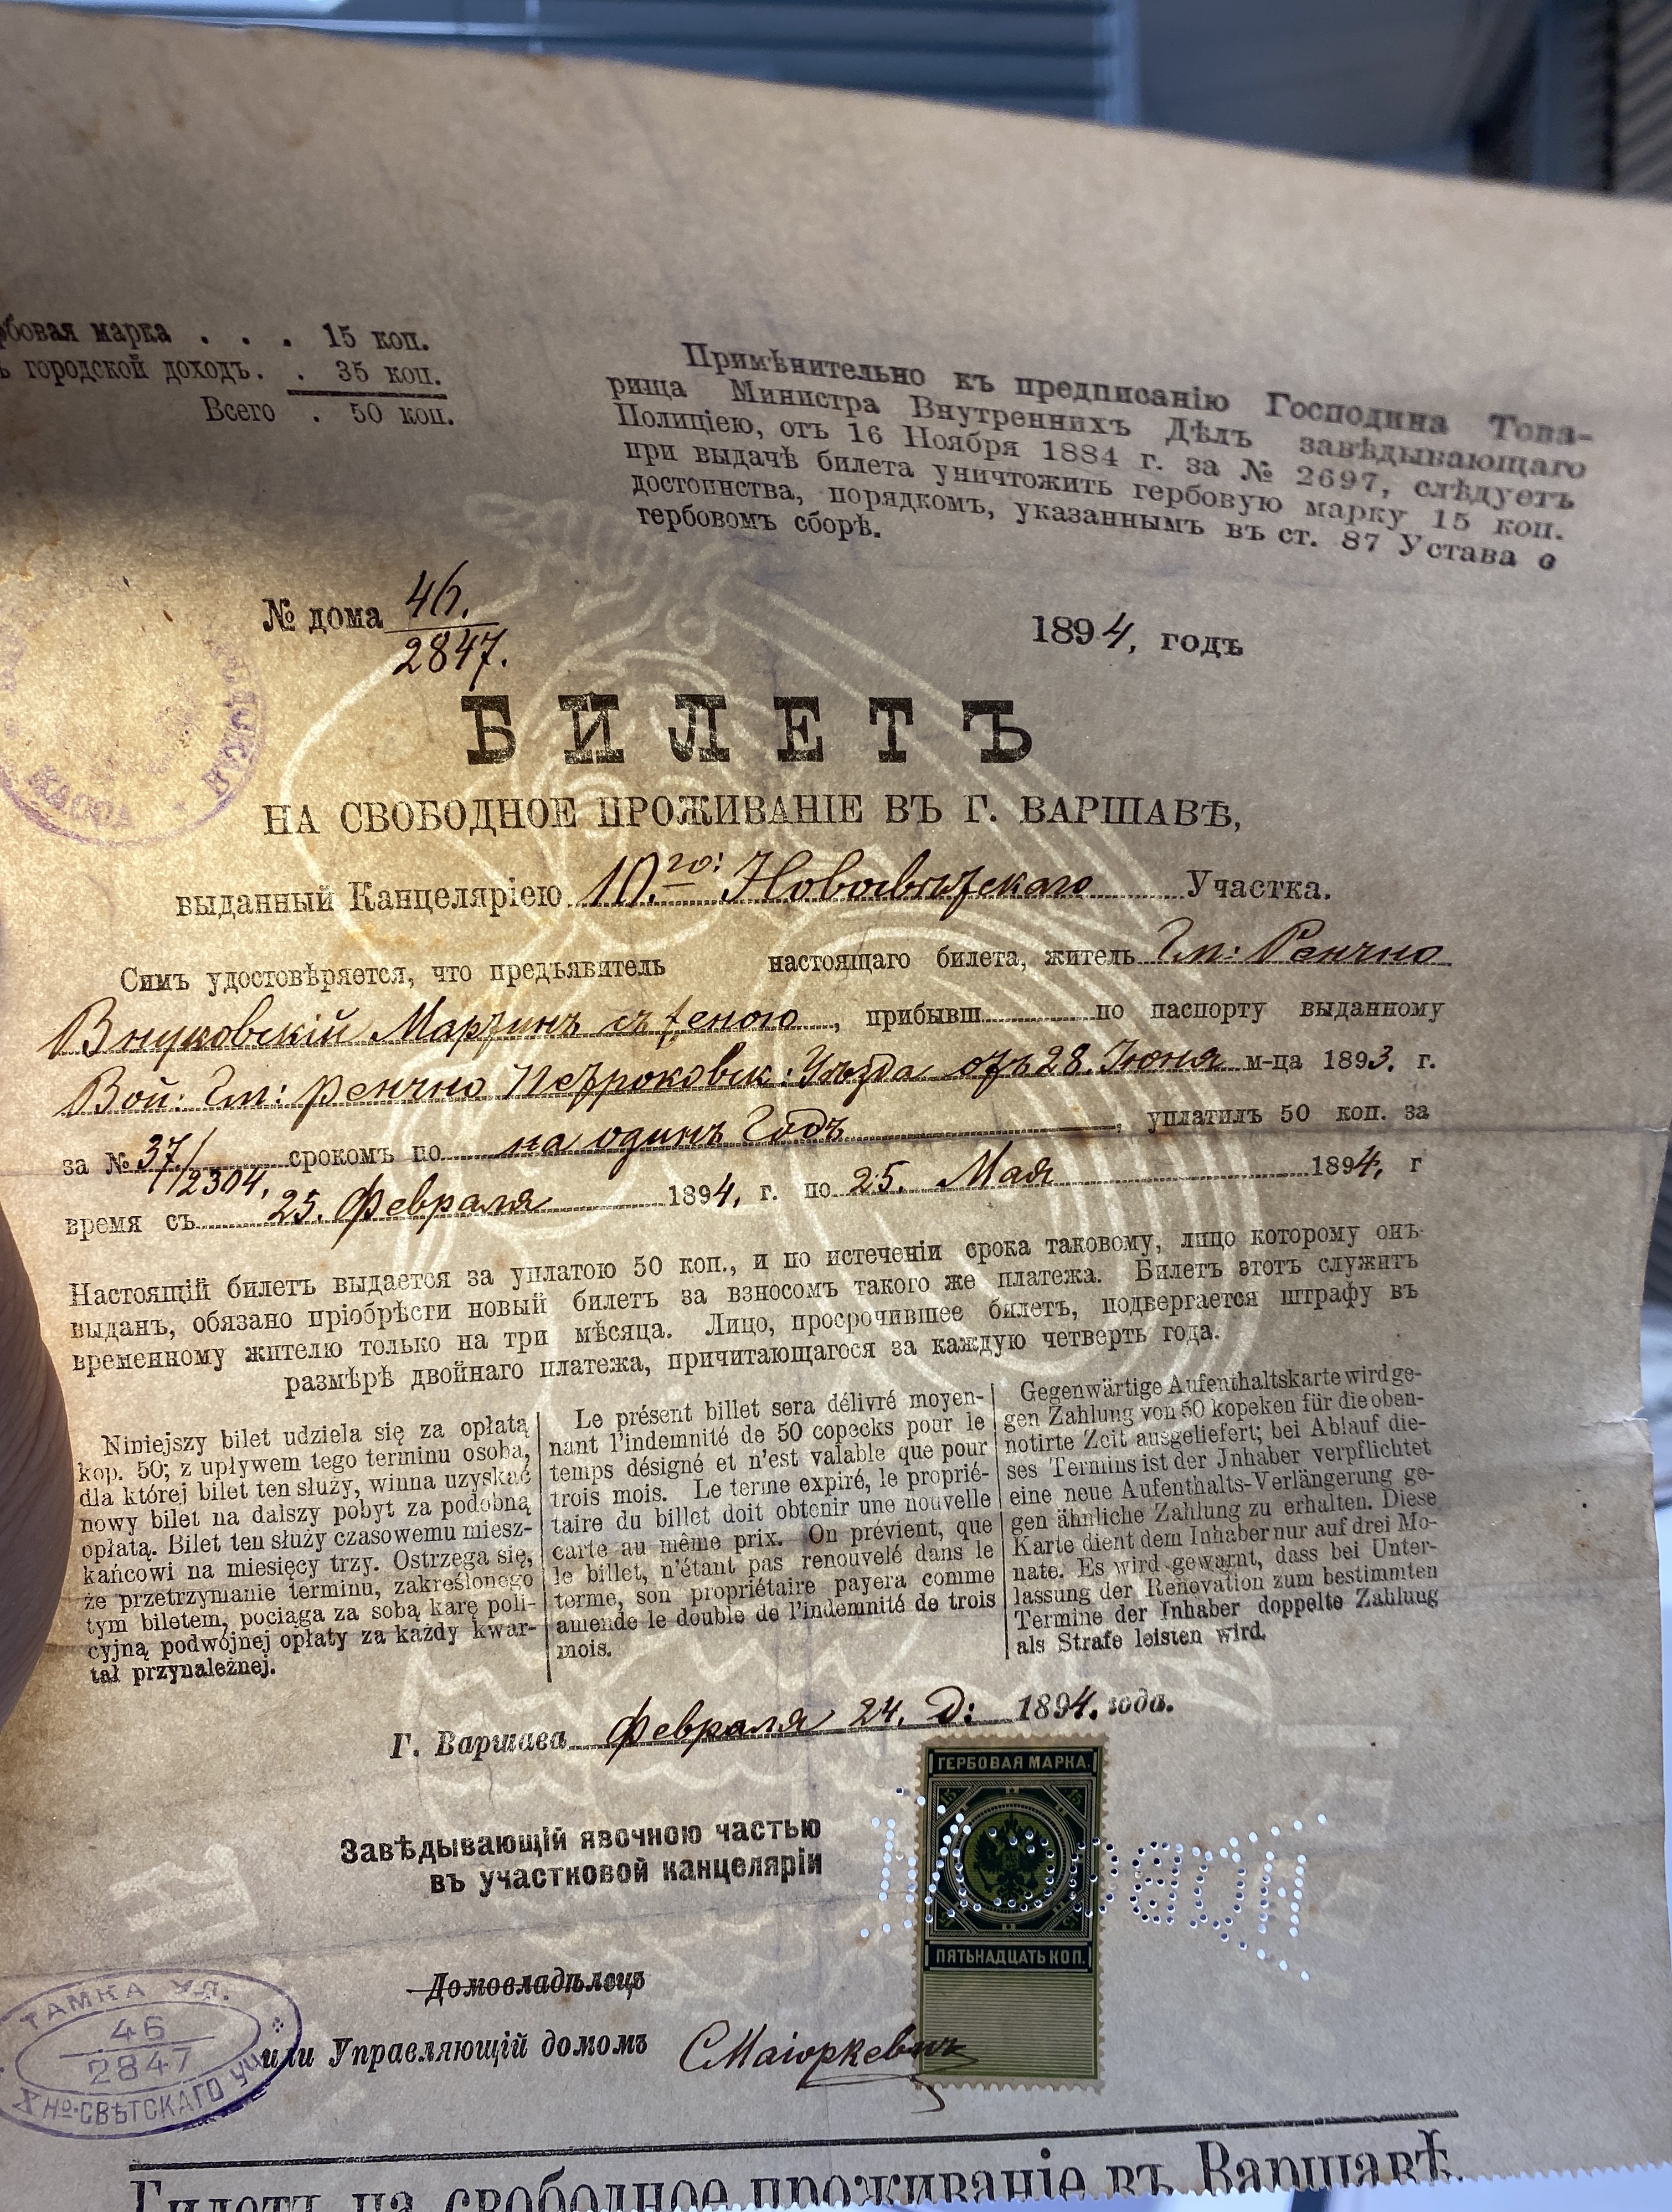 рбовая марка . . . 15 коп.
ъ городской доходъ. . 35 коп.
Всего . 50 коп.
Примѣнительно къ предписанію Господина Това-
рища Министра Внутреннихъ Дѣлъ завѣдывающаго
Полиціею, отъ 16 Ноября 1884 г. за № 2697, слѣдуетъ
при выдачѣ билета уничтожить гербовую марку 15 коп.
достоинства, порядкомъ, указаннымъ въ ст. 87 Устава о
гербовомъ сборѣ.
№ дома 46.
2847.
1894, годъ
БИЛЕТЪ
НА СВОБОДНОЕ ПРОЖИВАНІЕ ВЪ Г. ВАРШАВѢ,
КАССА
выданный Канцеляріею 10.го: Новосвѣтскаго Участка.
Симъ удостовѣряется, что предъявитель настоящаго билета, житель Гм: Ренчно
Внуковскій Мартинъ съ женою, прибывш по паспорту выданному
Вой: Гм: Ренчно Петроковск: Уѣзда отъ 28. Іюня м-ца 1893. г.
за № 37/2304, срокомъ по на одинъ Годъ, уплатилъ 50 коп. за
время съ 25. Февраля 1894, г. по 25. Мая 1894, г
Настоящій билетъ выдается за уплатою 50 коп., и по истеченіи срока таковому, лицо которому онъ
выданъ, обязано пріобрѣсти новый билетъ за взносомъ такого же платежа. Билетъ этотъ служитъ
временному жителю только на три мѣсяца. Лицо, просрочившее билетъ, подвергается штрафу въ
размѣрѣ двойнаго платежа, причитающагося за каждую четверть года.
Niniejszy bilet udziela się za opłatą
kop. 50; z upływem tego terminu osoba,
dla której bilet ten służy, winna uzyskać
nowy bilet na dalszy pobyt za podobną
opłatą. Bilet ten służy czasowemu miesz-
kańcowi na miesięcy trzy. Ostrzega się,
że przetrzymanie terminu, zakreślonego
tym biletem, pociąga za sobą karę poli-
cyjną podwójnej opłaty za każdy kwar-
tał przynależnej.
Le présent billet sera délivré moyen-
nant l'indemnité de 50 copecks pour le
temps désigné et n'est valable que pour
trois mois. Le terme expiré, le proprié-
taire du billet doit obtenir une nouvelle
carte au même prix. On prévient, que
le billet, n'étant pas renouvelé dans le
terme, son propriétaire payera comme
amende le double de l'indemnité de trois
mois.
Gegenwärtige Aufenthaltskarte wird ge-
gen Zahlung von 50 kopeken für die oben-
notirte Zeit ausgeliefert; bei Ablauf die-
ses Termins ist der Jnhaber verpflichtet
eine neue Aufenthalts-Verlängerung ge-
gen ähnliche Zahlung zu erhalten. Diese
Karte dient dem Inhaber nur auf drei Mo-
nate. Es wird gewarnt, dass bei Unter-
lassung der Renovation zum bestimmten
Termine der Inhaber doppelte Zahlung
als Strafe leisten wird.
Г. Варшава Февраля 24. Д: 1894. года.
ГЕРБОВАЯ МАРКА.
15 15
ПЯТЬНАДЦАТЬ КОП.
Завѣдывающій явочною частью
въ участковой канцеляріи
Домовладѣлецъ
или Управляющій домомъ СМаіоркевичъ
ТАМКА УЛ.
46
2847
X НО-СВѢТСКАГО УЧ
Билетъ на свободное проживаніе въ Варшавѣ.